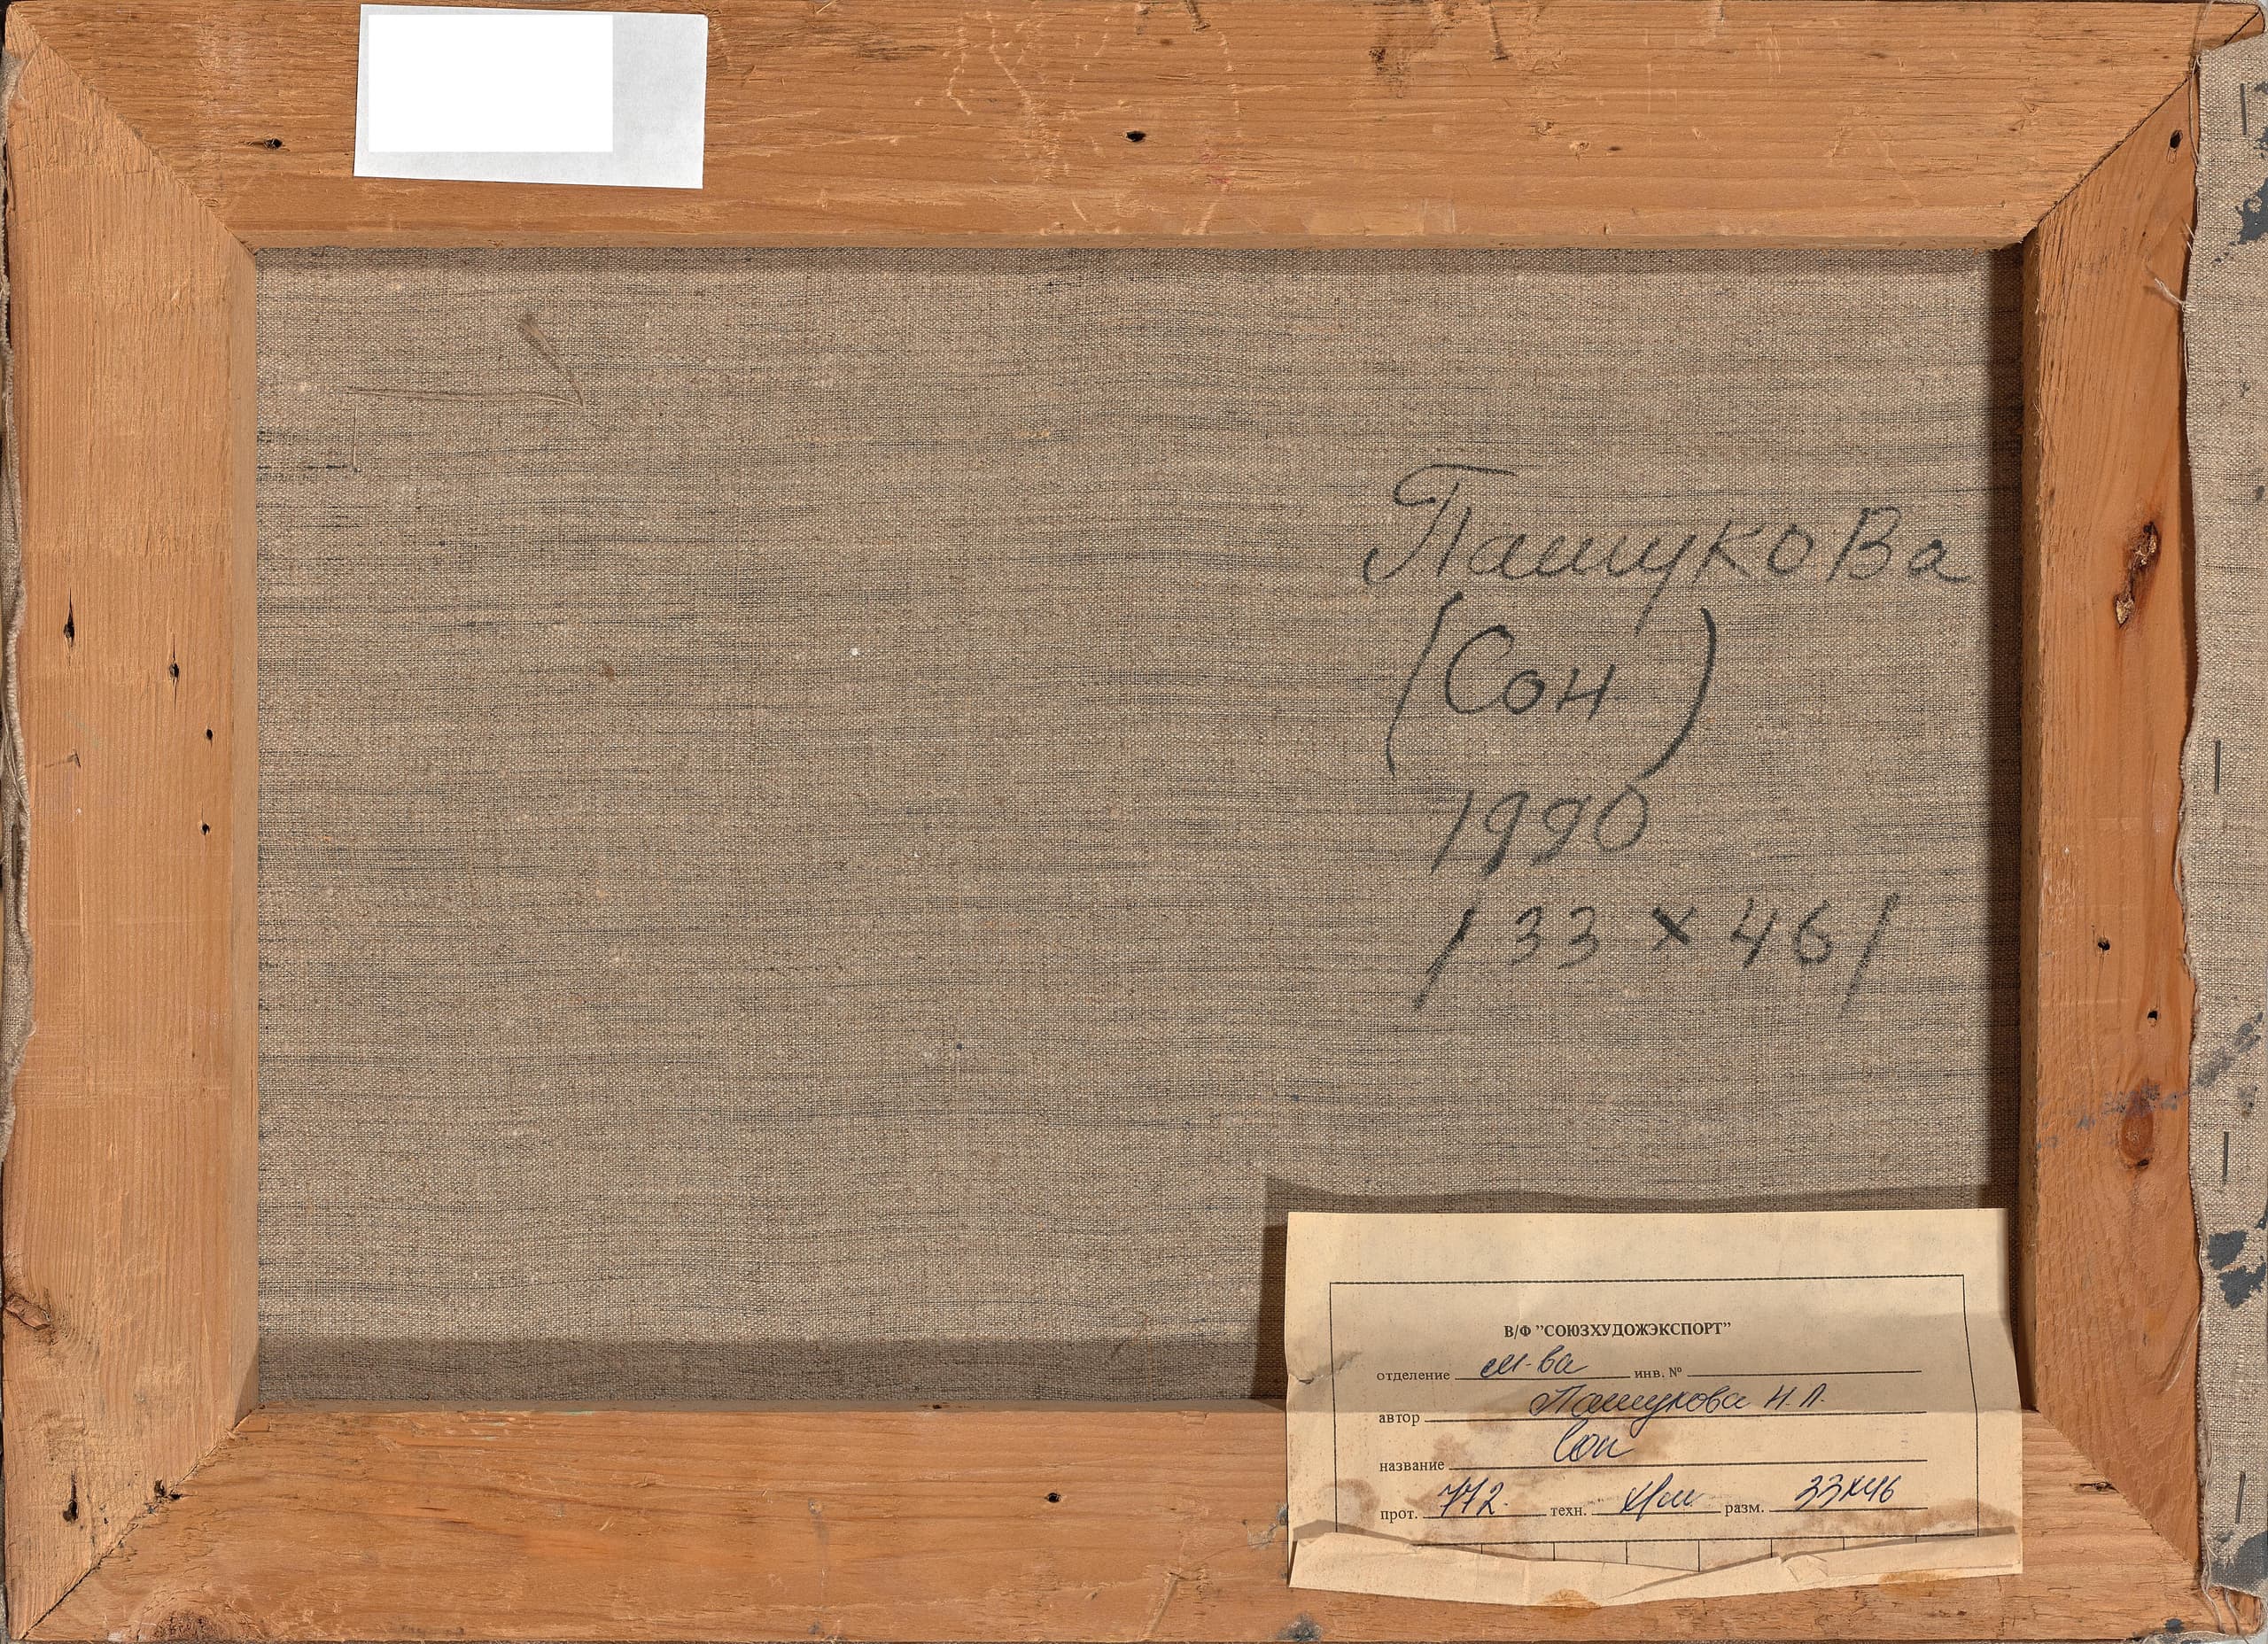 Пашукова
(Сон)
1990
/33 х 46/
В/Ф "СОЮЗХУДОЖЭКСПОРТ"
отделение м-ва инв. №
автор Пашукова Н.Л.
название Сон
прот. 772. техн. х/м разм. 33х46